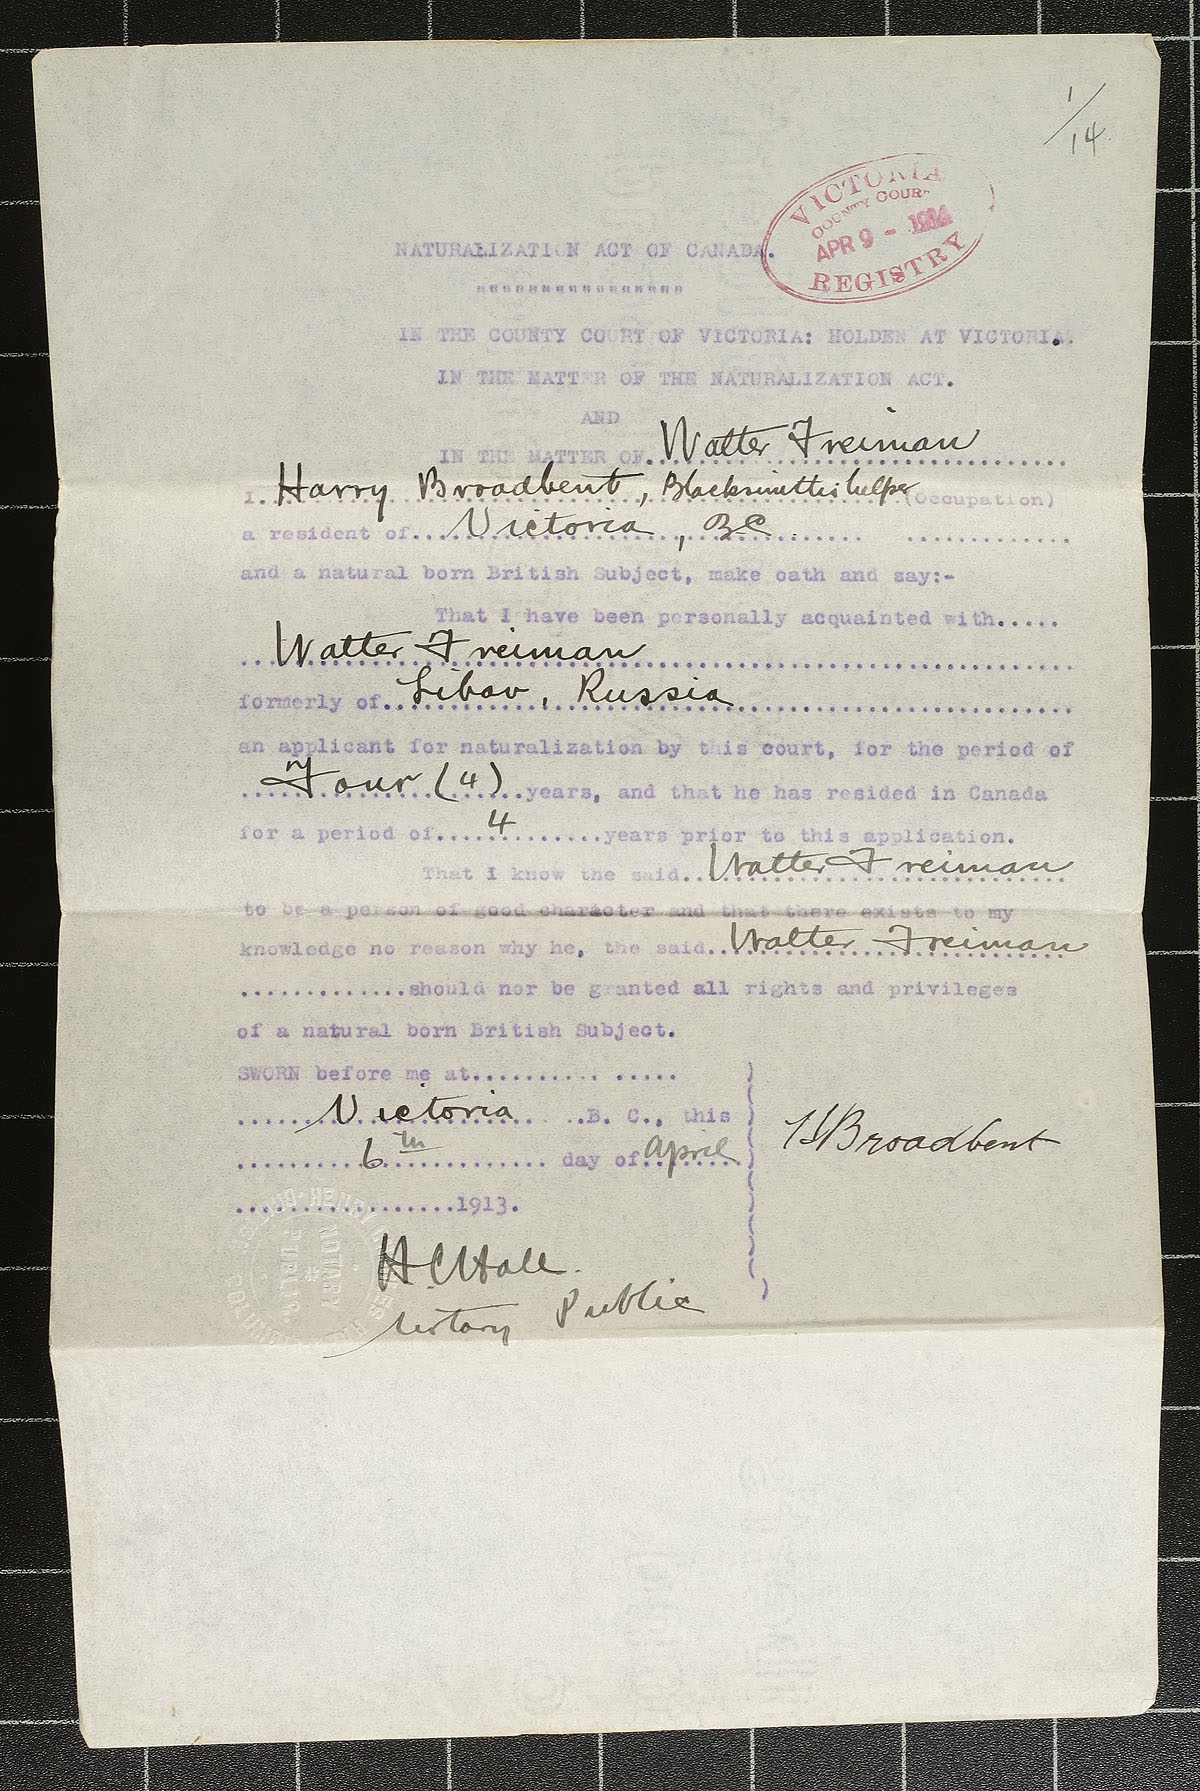 1/14
VICTORIA
COUNTY COURT
APR 9 - 1914
REGISTRY
NATURALIZATION ACT OF CANADA.
""""""""""""""""
IN THE COUNTY COURT OF VICTORIA: HOLDEN AT VICTORIA.
IN THE MATTER OF THE NATURALIZATION ACT.
AND
IN THE MATTER OF. Walter Freiman
I. Harry Broadbent, Blacksmiths helper (Occupation)
a resident of... Victoria, BC
and a natural born British Subject, make oath and say:-
That I have been personally acquainted with.....
Walter Freiman
formerly of.. Libav, Russia
an applicant for naturalization by this court, for the period of
Four (4) ..years, and that he has resided in Canada
for a period of.... 4 .......years prior to this application.
That I know the said.. Walter Freiman
to be a person of good character and that there exists to my
knowledge no reason why he, the said.. Walter Freiman
.............should nor be granted all rights and privileges
of a natural born British Subject.
SWORN before me at.......... .....
Victoria ..B. C., this
6th day of April
.................1913.
H Broadbent
H.C.Hall.
Notary Public
NOTARY
PUBLIC